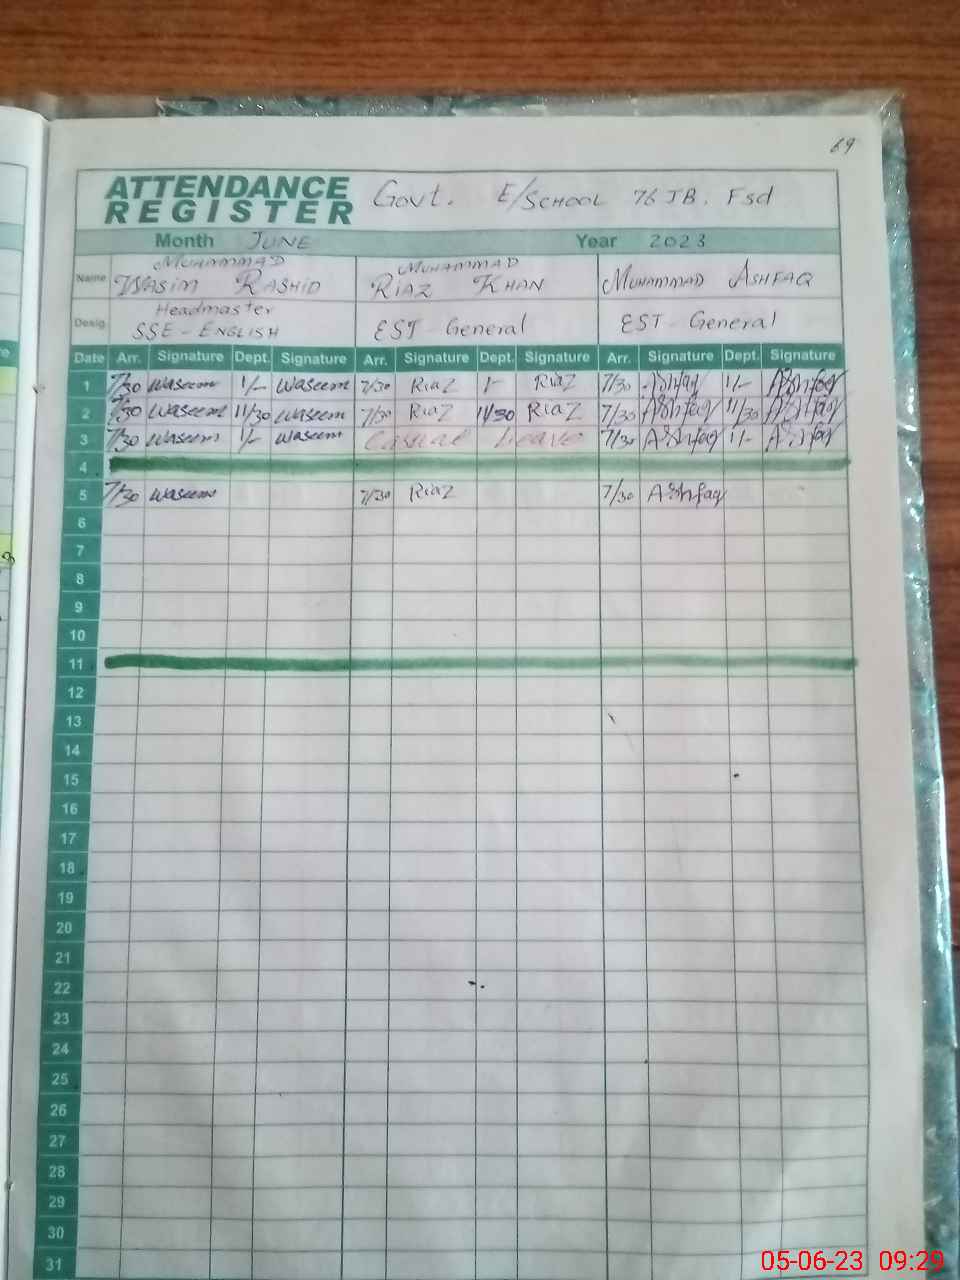 69
ATTENDANCE REGISTER Govt. E/SCHOOL 76 JB. Fsd
Month JUNE Year 2023
Name MUHAMMAD WASIM RASHID MUHAMMAD RIAZ KHAN MUHAMMAD ASHFAQ
Desig. Headmaster SSE-ENGLISH EST-General EST-General
Date Arr. Signature Dept. Signature Arr. Signature Dept. Signature Arr. Signature Dept. Signature
1 7/30 Waseem 1/- Waseem 7/30 Riaz 1- Riaz 7/30 Ashfaq 1/- Ashfaq
2 7/30 Waseem 11/30 Waseem 7/30 Riaz 11/30 Riaz 7/30 Ashfaq 11/30 Ashfaq
3 7/30 Waseem 1/- Waseem Casual Leave 7/30 Ashfaq 1/- Ashfaq
4
5 7/30 Waseem 7/30 Riaz 7/30 Ashfaq
6
7
8
9
10
11
12
13
14
15
16
17
18
19
20
21
22
23
24
25
26
27
28
29
30
31
05-06-23 09:29